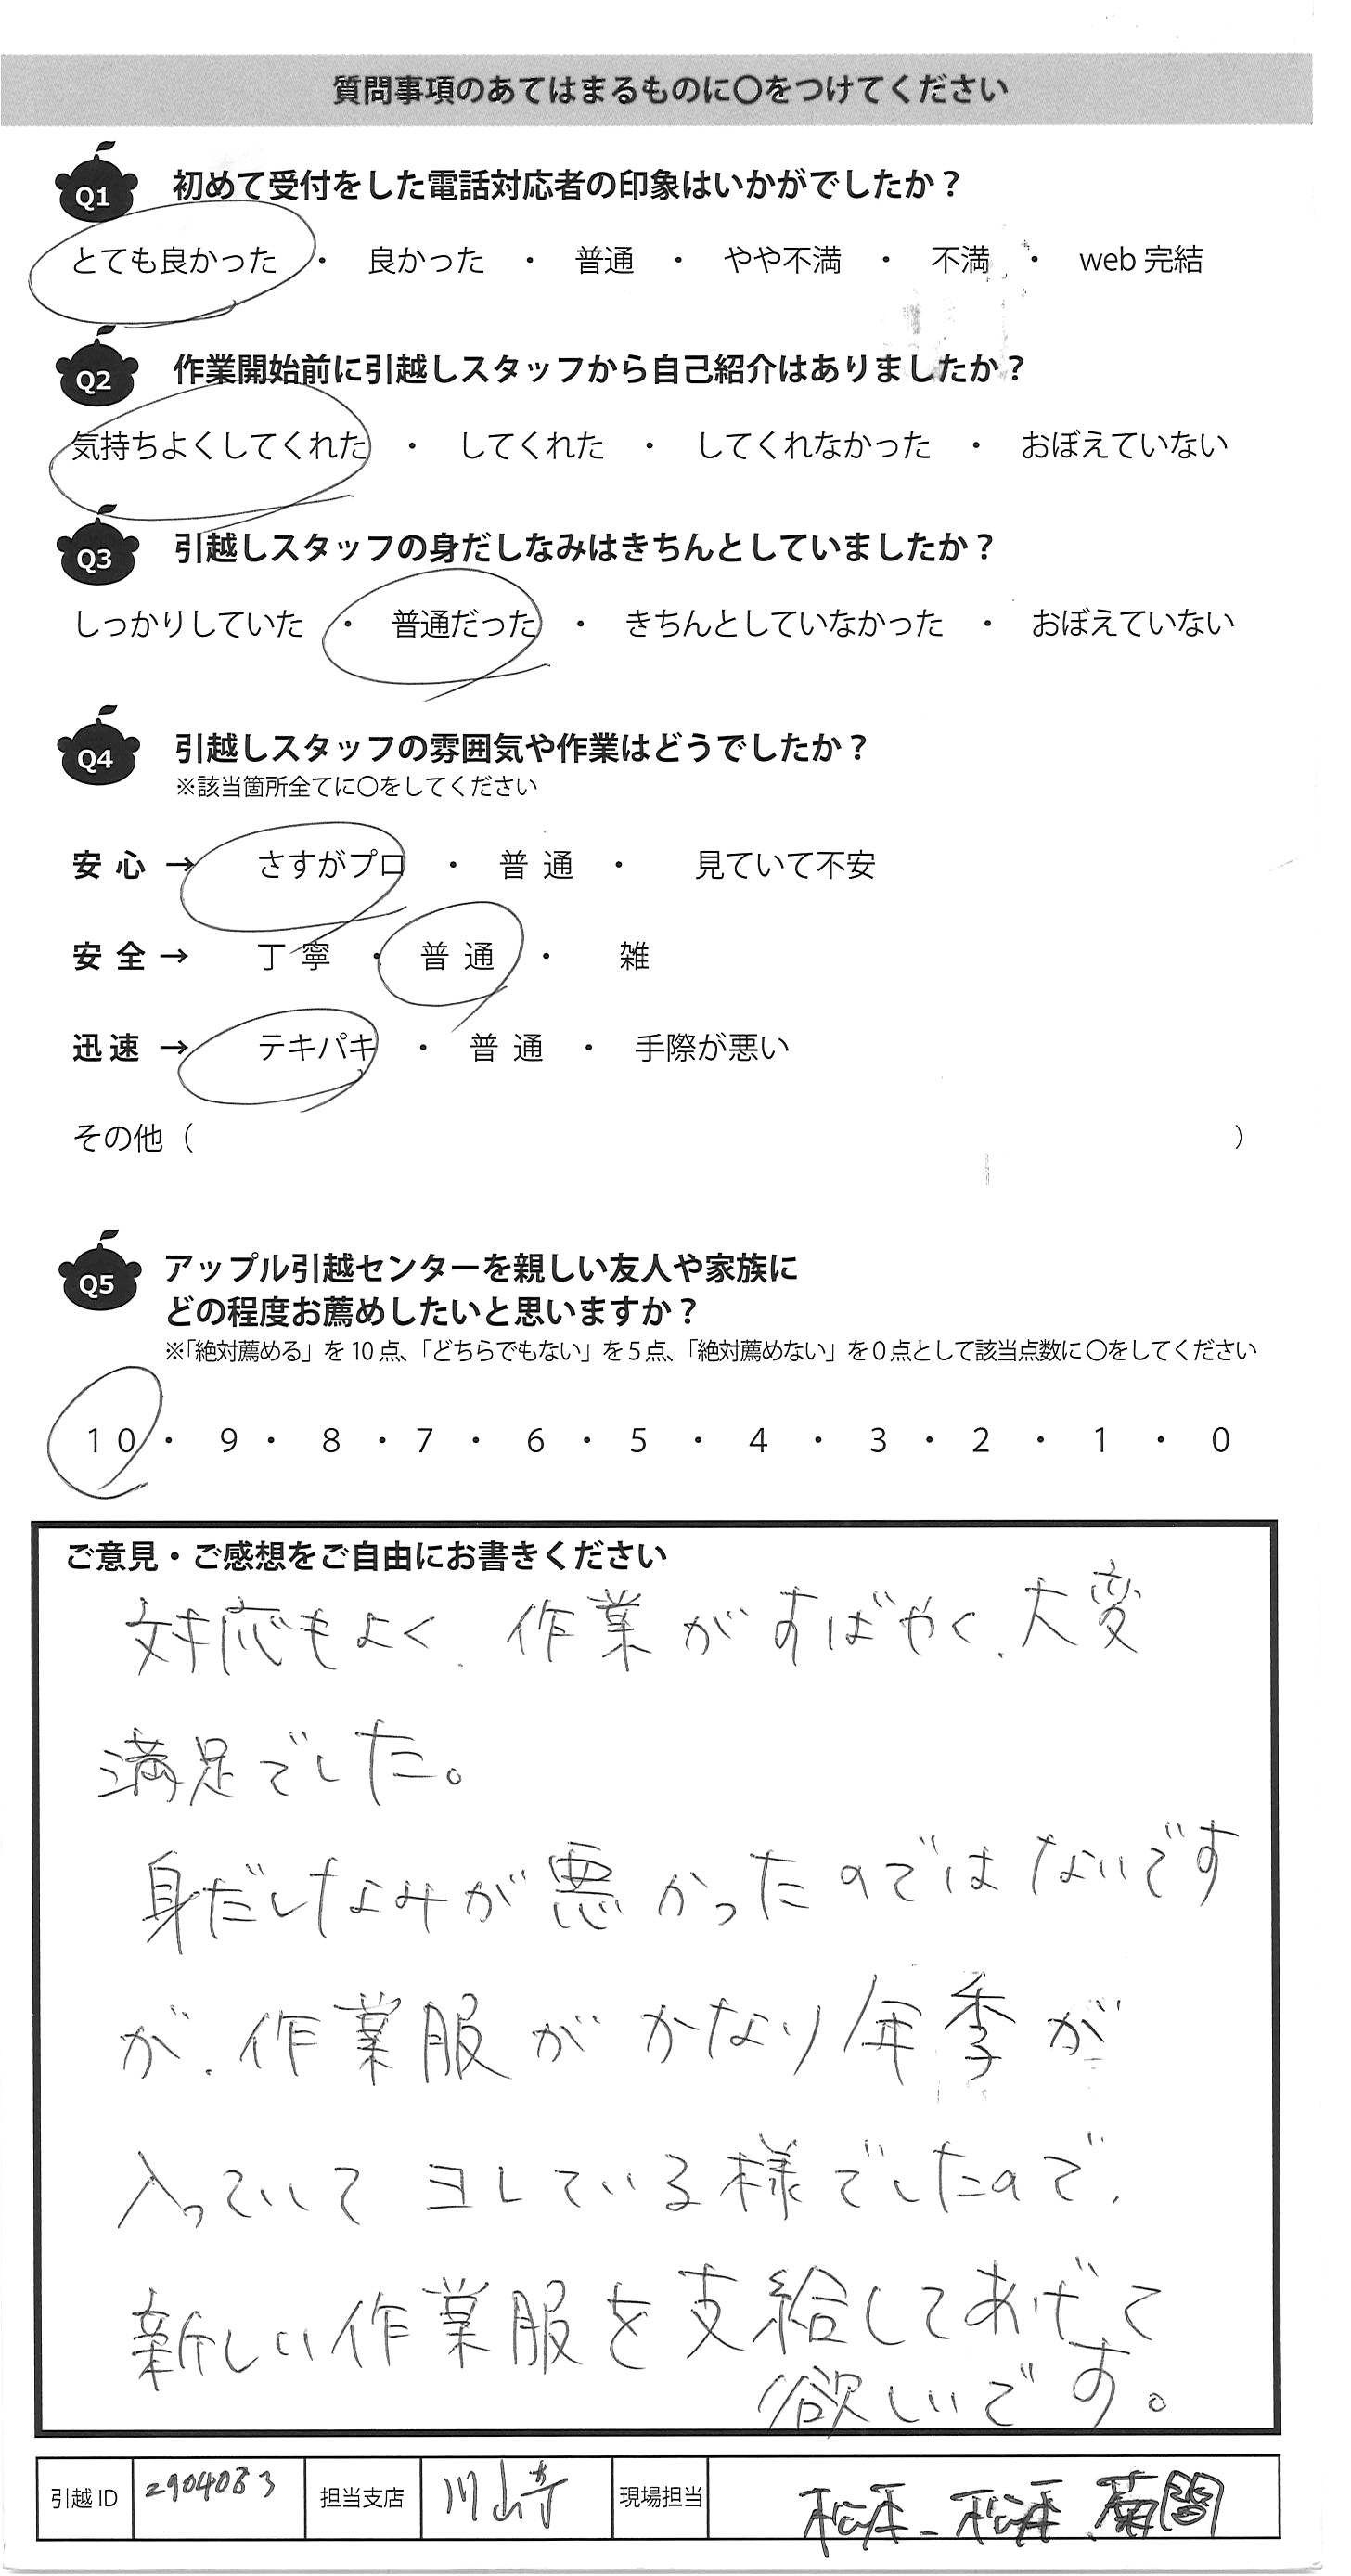 質問事項のあてはまるものに〇をつけてください
Q1 初めて受付をした電話対応者の印象はいかがでしたか？
とても良かった ・ 良かった ・ 普通 ・ やや不満 ・ 不満 ・ web 完結
Q2 作業開始前に引越しスタッフから自己紹介はありましたか？
気持ちよくしてくれた ・ してくれた ・ してくれなかった ・ おぼえていない
Q3 引越しスタッフの身だしなみはきちんとしていましたか？
しっかりしていた ・ 普通だった ・ きちんとしていなかった ・ おぼえていない
Q4 引越しスタッフの雰囲気や作業はどうでしたか？
※該当箇所全てに〇をしてください
安心 → さすがプロ ・ 普通 ・ 見ていて不安
安全 → 丁寧 ・ 普通 ・ 雑
迅速 → テキパキ ・ 普通 ・ 手際が悪い
その他（ ）
Q5 アップル引越センターを親しい友人や家族に
どの程度お薦めしたいと思いますか？
※「絶対薦める」を10点、「どちらでもない」を5点、「絶対薦めない」を0点として該当点数に〇をしてください
10 ・ 9 ・ 8 ・ 7 ・ 6 ・ 5 ・ 4 ・ 3 ・ 2 ・ 1 ・ 0
ご意見・ご感想をご自由にお書きください
対応もよく、作業がすばやく、大変
満足でした。
身だしなみが悪かったのではないです
が、作業服がかなり年季が
入っていてヨレている様でしたので、
新しい作業服を支給してあげて
欲しいです。
引越ID 2904083 担当支店 川崎 現場担当